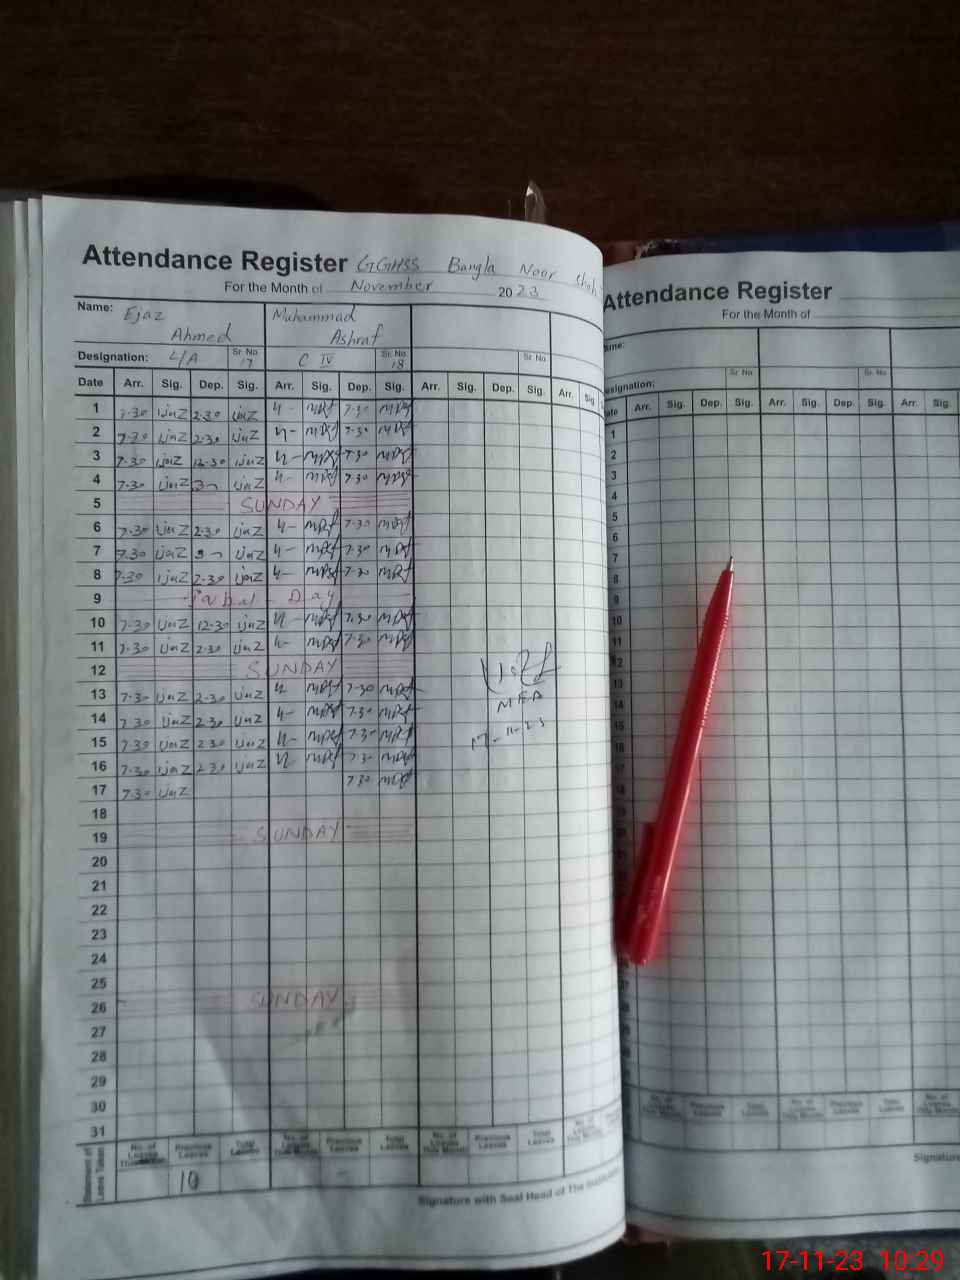 Attendance Register GGHSS Bangla Noor Shah
For the Month of November 2023
Name: Ejaz Ahmed Muhammad Ashraf
Designation: L/A Sr. No. 17 C IV Sr. No. 18 Sr. No
Date Arr. Sig. Dep. Sig. Arr. Sig. Dep. Sig. Arr. Sig. Dep. Sig. Arr. Sig.
1 7-30 ijaz 2-30 ijaz 4- 7-30
2 7-30 ijaz 2-30 ijaz 4- 7-30
3 7-30 ijaz 12-30 ijaz 4- 7-30
4 7-30 ijaz ijaz 4- 7-30
5 SUNDAY
6 7-30 ijaz 2-30 ijaz 4- 7-30
7 7.30 ijaz ijaz 4- 7-30
8 7-30 ijaz 2-30 ijaz 4- 7-30
9 Iqbal - Day
10 7-30 ijaz 12-30 ijaz 4- 7-30
11 7-30 ijaz 2-30 ijaz 4- 7-30
12 SUNDAY
13 7-30 ijaz 2-30 ijaz 4 7-30
14 7-30 ijaz 2-30 ijaz 4- 7-30
15 7-30 ijaz 2-30 ijaz 4- 7-30
16 7-30 ijaz 2-30 ijaz 4- 7-30
17 7-30 ijaz 7-30
MEA
17-11-23
18
19 SUNDAY
20
21
22
23
24
25
26 SUNDAY
27
28
29
30
31
Statement of Leave Taken No. of Leaves This Month Previous Leaves Total Leaves No. of Leaves This Month Previous Leaves Total Leaves No. of Leaves This Month Previous Leaves Total Leaves No. of Leaves This Month
10 -
Signature with Seal Head of The
Attendance Register
For the Month of
Designation: Sr. No. Sr. No.
Arr. Sig. Dep. Sig. Arr. Sig. Dep. Sig. Arr. Sig.
1
2
3
4
5
6
7
8
9
10
11
12
13
14
15
16
17
18
No. of Leaves This Month Previous Leaves Total Leaves No. of Leaves This Month Previous Leaves Total Leaves No. of Leaves This Month
Signature
17-11-23 10:29